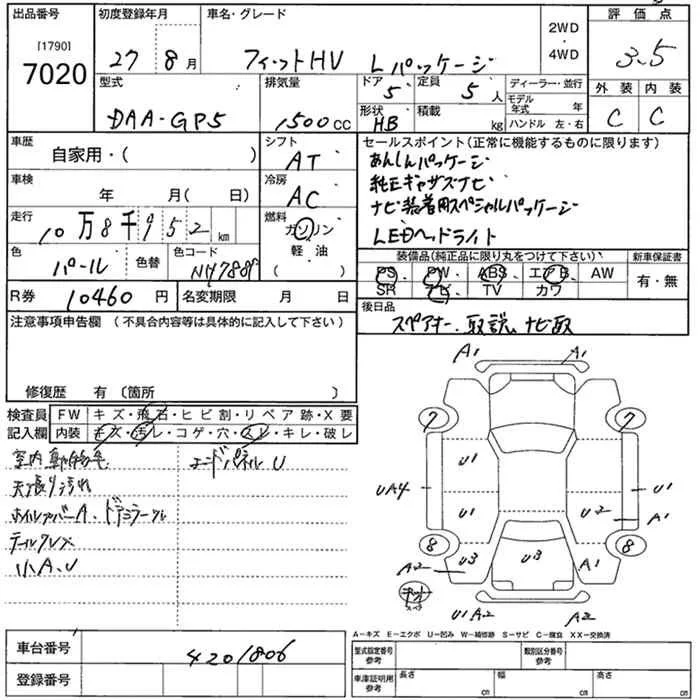 出品番号 初度登録年月 車名・グレード 2WD・4WD 評価点
[1790]
7020 27 8月 フィットHV Lパッケージ 3.5
型式 排気量 ドア 5 定員 5人 ディーラー・並行 外装 内装
DAA-GP5 1500cc 形状 HB 積載 kg モデル年式 年 C C
ハンドル 左・右
車歴 自家用・( ) シフト AT セールスポイント(正常に機能するものに限ります)
あんしんパッケージ
車検 年 月( 日) 冷房 AC 純正ギャザズナビ
走行 10万8千952km 燃料 ガソリン・軽油( ) ナビ装着用スペシャルパッケージ
LEDヘッドライト
色 パール 色替 色コード NH788P 装備品(純正品に限り丸をつけて下さい) 新車保証書
PS・PW・ABS・エアB・AW 有・無
R券 10460円 名変期限 月 日 SR ナビ TV カワ
注意事項申告欄(不具合内容等は具体的に記入して下さい) 後日品
スペアキー、取説、ナビ取
修復歴 有(箇所 )
検査員 FW キズ・飛石・ヒビ割・リペア跡・X要
記入欄 内装 キズ・汚レ・コゲ・穴・スレ・キレ・破レ
エンドパネルU
天張り汚れ
ドアミラーキズ
小A、U
A1 A1
7 7
U1
UA4 U1 U2 U1 A1
8 8
A2 U3 U3 A1
キット
U1A2 A2
A-キズ E-エクボ U-凹み W-補修跡 S-サビ C-腐食 XX-交換済
車台番号 4201806 型式指定番号 参考 類別区分番号 参考
登録番号 車庫証明用 参考 長さ cm 幅 cm 高さ cm